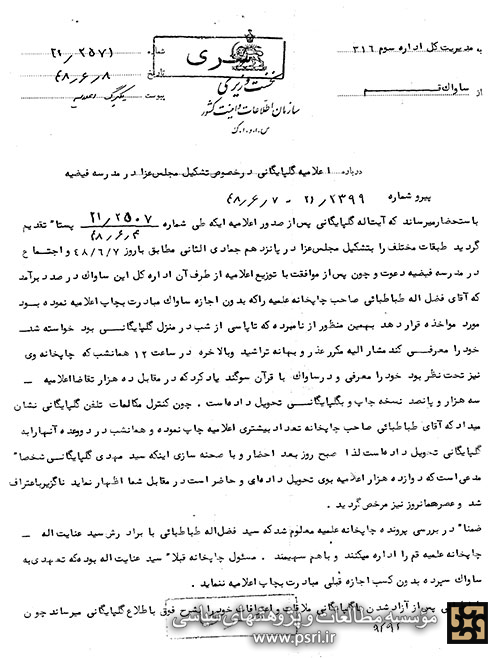 به مدیریت کل اداره سوم ۳۱۶
از ساواك قم
سری
نخست وزیری
سازمان اطلاعات و امنیت کشور
س.ا.و.ا.ک
شماره ۲۱/۲۵۷۱
تاریخ ۴۸/۶/۸
پیوست یکبرگ اعلامیه
درباره اعلامیه گلپایگانی درخصوص تشکیل مجلس عزا در مدرسه فیضیه
پیرو شماره ۲۱/۲۳۹۹ - ۴۸/۶/۷
باستحضار میرساند که آیت‌اله گلپایگانی پس از صدور اعلامیه ایکه طی شماره ۲۱/۲۵۰۷ ۴۸/۶/۴ پستا" تقدیم
گردید طبقات مختلف را بتشکیل مجلس عزا در پانزدهم جمادی الثانی مطابق با روز ۴۸/۶/۷ و اجتماع
در مدرسه فیضیه دعوت و چون پس از موافقت با توزیع اعلامیه از طرف آن اداره کل این ساواك در صدد برآمد
که آقای فضل اله طباطبائی صاحب چاپخانه علمیه را که بدون اجازه ساواك مبادرت بچاپ اعلامیه نموده بود
مورد مواخذه قرار دهد بهمین منظور از نامبرده که تا پاسی از شب در منزل گلپایگانی بود خواسته شد
خود را معرفی کند مشارالیه مکرر عذر و بهانه تراشید وبالاخره در ساعت ۱۲ همانشب که چاپخانه وی
نیز تحت نظر بود خود را معرفی و در ساواك با قرآن سوگند یاد کرد که در مقابل ده هزار تقاضا اعلامیه -
سه هزار و پانصد نسخه چاپ و بگلپایگانی تحویل داده است . چون کنترل مکالمات تلفن گلپایگانی نشان
میداد که آقای طباطبائی صاحب چاپخانه تعداد بیشتری اعلامیه چاپ نموده و همانشب در دو وعده آنها را به
گلپایگانی تحویل داده است لذا صبح روز بعد احضار و با صحنه سازی اینکه سید مهدی گلپایگانی شخصا"
مدعی است که دوازده هزار اعلامیه بوی تحویل داده‌ای و حاضر است در مقابل شما اظهار نماید ناگزیر باعتراف
شد و عصر همانروز نیز مرخص گردید .
ضمنا" در بررسی پرونده چاپخانه علمیه معلوم شد که سید فضل اله طباطبائی با برادرش سید عنایت اله -
چاپخانه علمیه قم را اداره میکنند و با هم سهیمند . مسئول چاپخانه قبلا" سید عنایت اله بوده که تعهدی به
ساواك سپرده بدون کسب اجازه قبلی مبادرت بچاپ اعلامیه ننماید .
پس از آزاد شدن با گلپایگانی ملاقات و اعترافات خود را بشرح فوق باطلاع گلپایگانی میرساند چون
مؤسسه مطالعات و پژوهشهای سیاسی
www.psri.ir